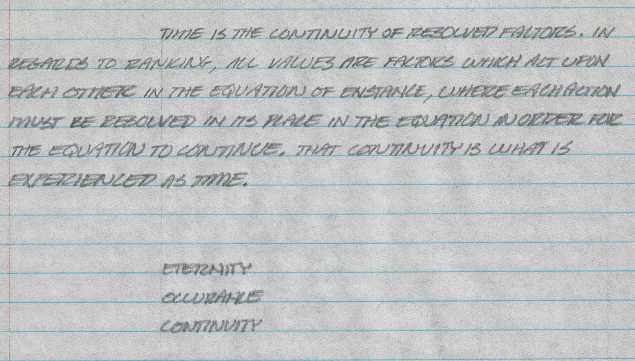 TIME IS THE CONTINUITY OF RESOLVED FACTORS. IN
REGARDS TO RANKING, ALL VALUES ARE FACTORS WHICH ACT UPON
EACH OTHER IN THE EQUATION OF ENSTANCE, WHERE EACH ACTION
MUST BE RESOLVED IN ITS PLACE IN THE EQUATION IN ORDER FOR
THE EQUATION TO CONTINUE. THAT CONTINUITY IS WHAT IS
EXPERIENCED AS TIME.
ETERNITY
OCCURANCE
CONTINUITY